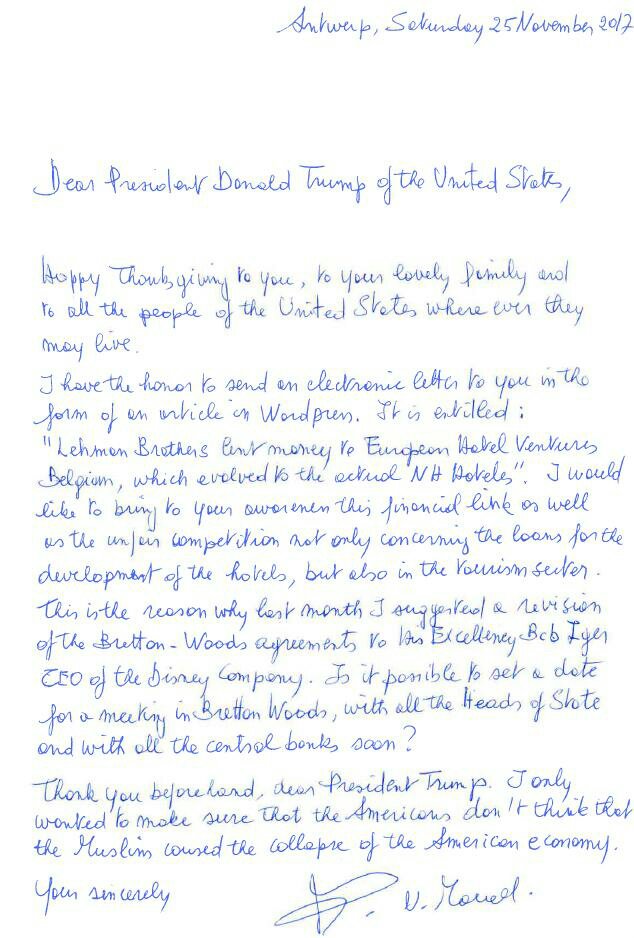 Antwerp, Saturday 25 November 2017
Dear President Donald Trump of the United States,
Happy Thanksgiving to you, to your lovely family and
to all the people of the United States where ever they
may live.
I have the honor to send an electronic letter to you in the
form of an article in Wordpress. It is entitled :
"Lehman Brothers lent money to European Hotel Ventures
Belgium, which evolved to the actual NH Hoteles". I would
like to bring to your awareness this financial link as well
as the unfair competition not only concerning the loans for the
development of the hotels, but also in the tourism sector.
This is the reason why last month I suggested a revision
of the Bretton-Woods agreements to His Excellency Bob Iger
CEO of the Disney Company. Is it possible to set a date
for a meeting in Bretton Woods, with all the Heads of State
and with all the central banks soon ?
Thank you beforehand, dear President Trump. I only
wanted to make sure that the Americans don't think that
the Muslims caused the collapse of the American economy.
Your sincerely